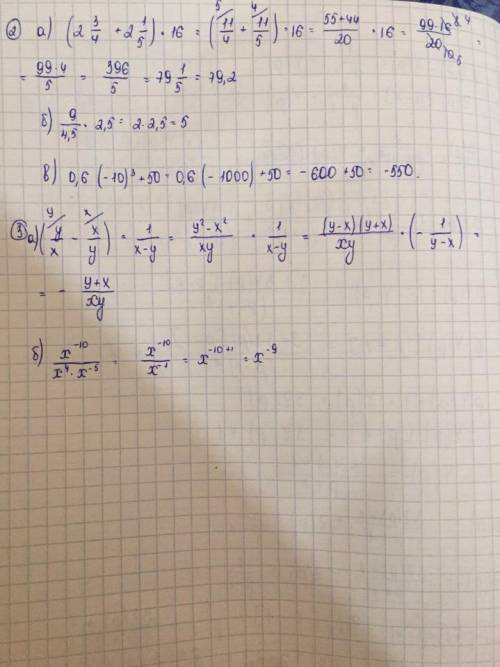 ② а) (2 3/4 + 2 1/5) · 16 = (11/4 + 11/5) · 16 = (55+44)/20 · 16 = (99·16)/20 =
= (99·4)/5 = 396/5 = 79 1/5 = 79,2
б) 9/4,5 · 2,5 = 2·2,5 = 5
в) 0,6 (-10)³ + 50 = 0,6 (-1000) + 50 = -600 + 50 = -550.
③ а) (y/x - x/y) = 1/(x-y) = (y²-x²)/(xy) · 1/(x-y) = ((y-x)(y+x))/(xy) · (- 1/(y-x)) =
= - (y+x)/(xy)
б) x⁻¹⁰/(x⁴·x⁻⁵) = x⁻¹⁰/x⁻¹ = x⁻¹⁰⁺¹ = x⁻⁹